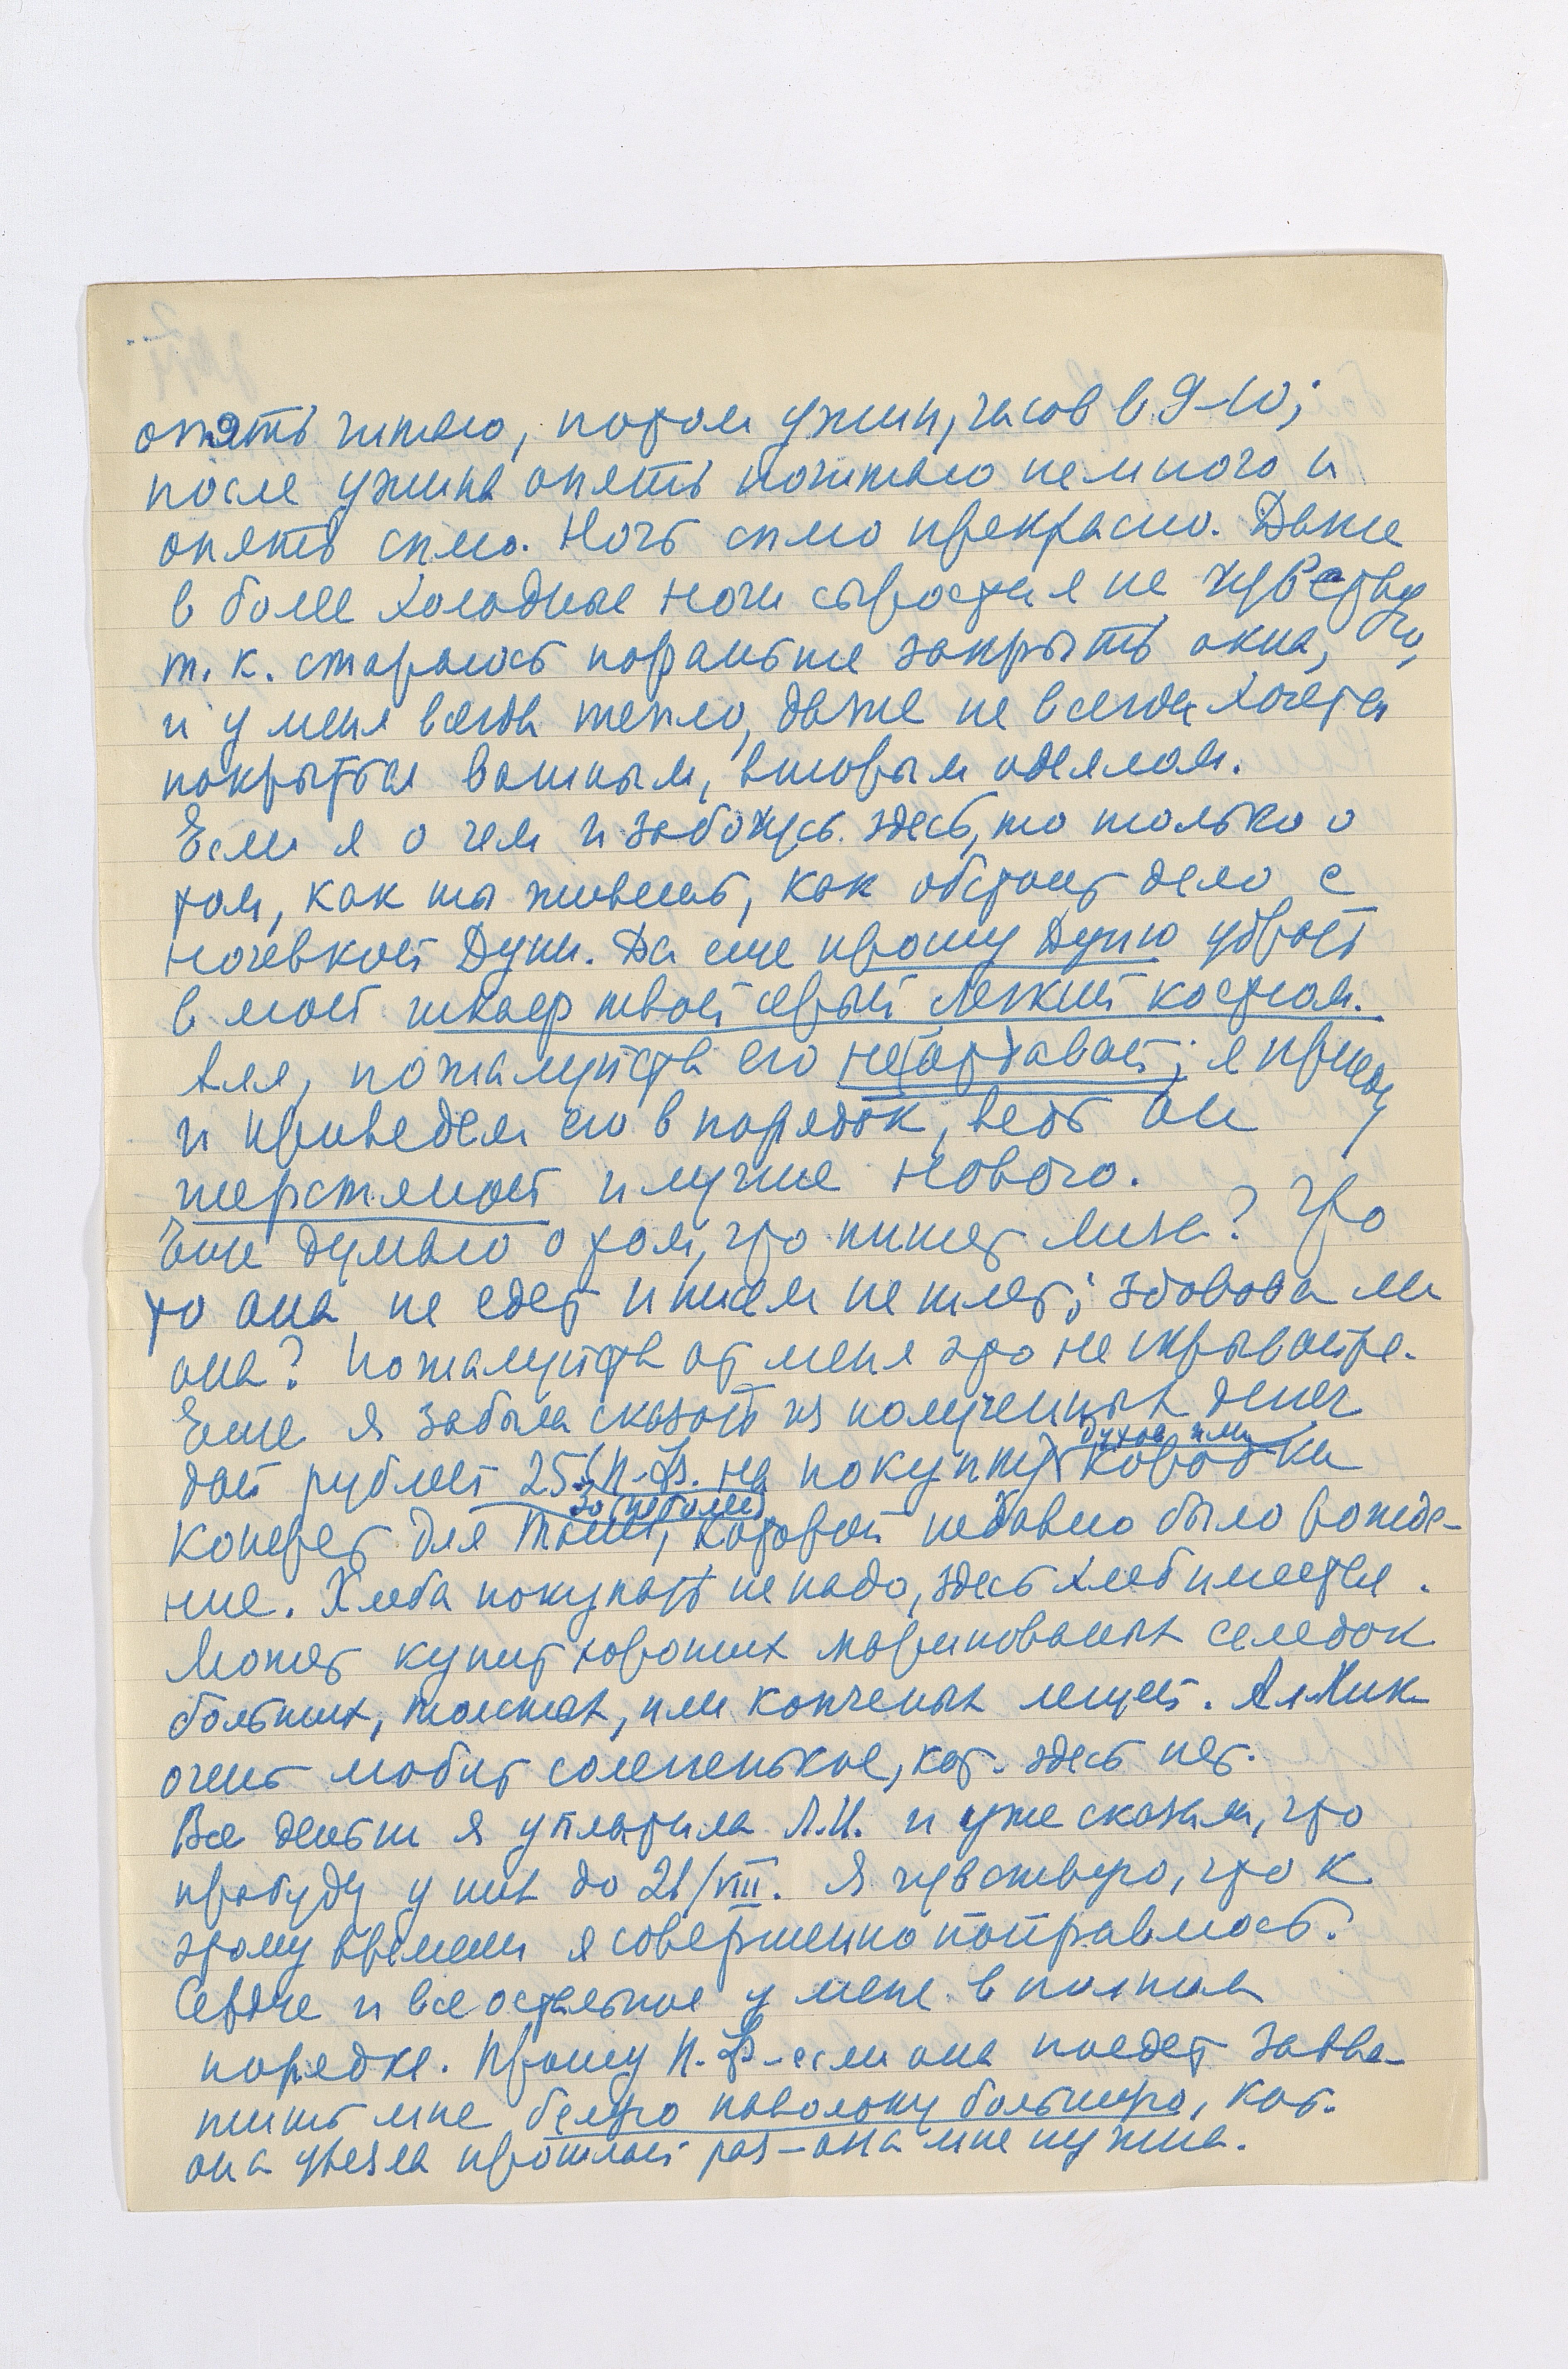 опять читаю, потом ужин, часов в 9-10;
после ужина опять почитаю немного и
опять сплю. Ночь сплю прекрасно. Даже
в более холодные ночи сырости я не чувствую,
т. к. стараюсь пораньше закрыть окна,
и у меня всегда тепло, даже не всегда хочется
покрыться ватным, вторым одеялом.
Если я о чем и забочусь здесь, то только о
том, как ты живешь, как обстоит дело с
ночевкой Дуни. Да еще прошу Дуню убрать
в мой шкаф твой серый легкий костюм.
Аля, пожалуйста его не отдавай; я приеду
и приведем его в порядок, ведь он
шерстяной и лучше нового.
Еще думаю о том, что пишет Лиза? Что
то она не едет и писем не шлет; здорова ли
она? Пожалуйста от меня это не скрывайте.
Еще я забыла сказать из полученных денег
духов или
дай рублей 25 П.Ф. на покупку коробки
30 (не более)
конфет для Тани, которой недавно было рожде-
ние. Хлеба покупать не надо, здесь хлеб имеется.
Может купит хороших маринованых селедок
больших, толстых, или копченых лещей. Ал. Ник
очень любит солененькое, кот. здесь нет.
Все деньги я уплатила Л.И. и уже сказала, что
пробуду у них до 21/VIII. Я чувствую, что к
этому времени я совершенно поправлюсь.
Сердце и все остальное у меня в полном
порядке. Прошу П.Ф - если она поедет захва-
тить мне белую наволочку большую, кот.
она увезла прошлый раз - она мне нужна.